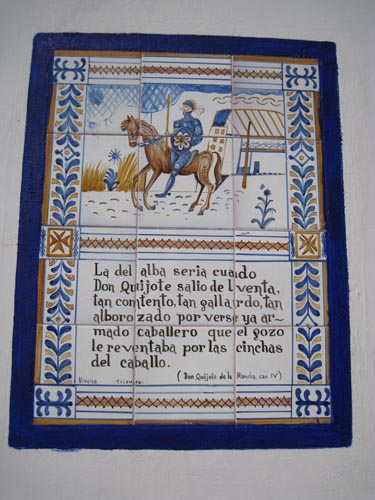 La del alba seria cuando
Don Quijote salio de l venta,
tan contento, tan gallardo, tan
alborozado por verse ya ar-
mado caballero que el gozo
le reventaba por las cinchas
del caballo.
(Don Quijote de la Mancha, cap. IV)
TALAVERA